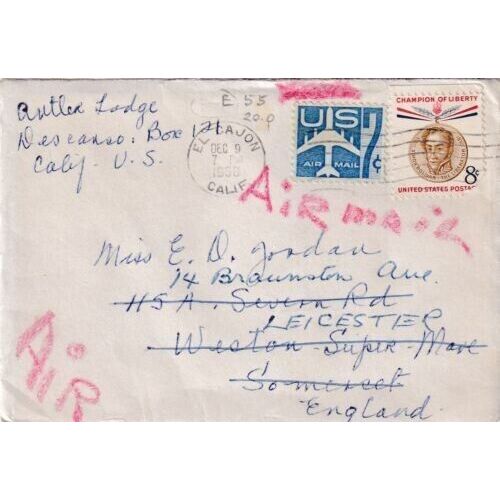 Antler Lodge
Descanso. Box 121
Calif. U. S.
E 55
20.0
EL CAJON
DEC 9
7 PM
CALIF.
US
7c
AIR MAIL
CHAMPION OF LIBERTY
8c
UNITED STATES POSTAGE
Air mail
Miss E. D. Jordan
14 Braunston Ave.
115A. Severn Rd
LEICESTER
Weston Super-Mare
Somerset
England.
Air